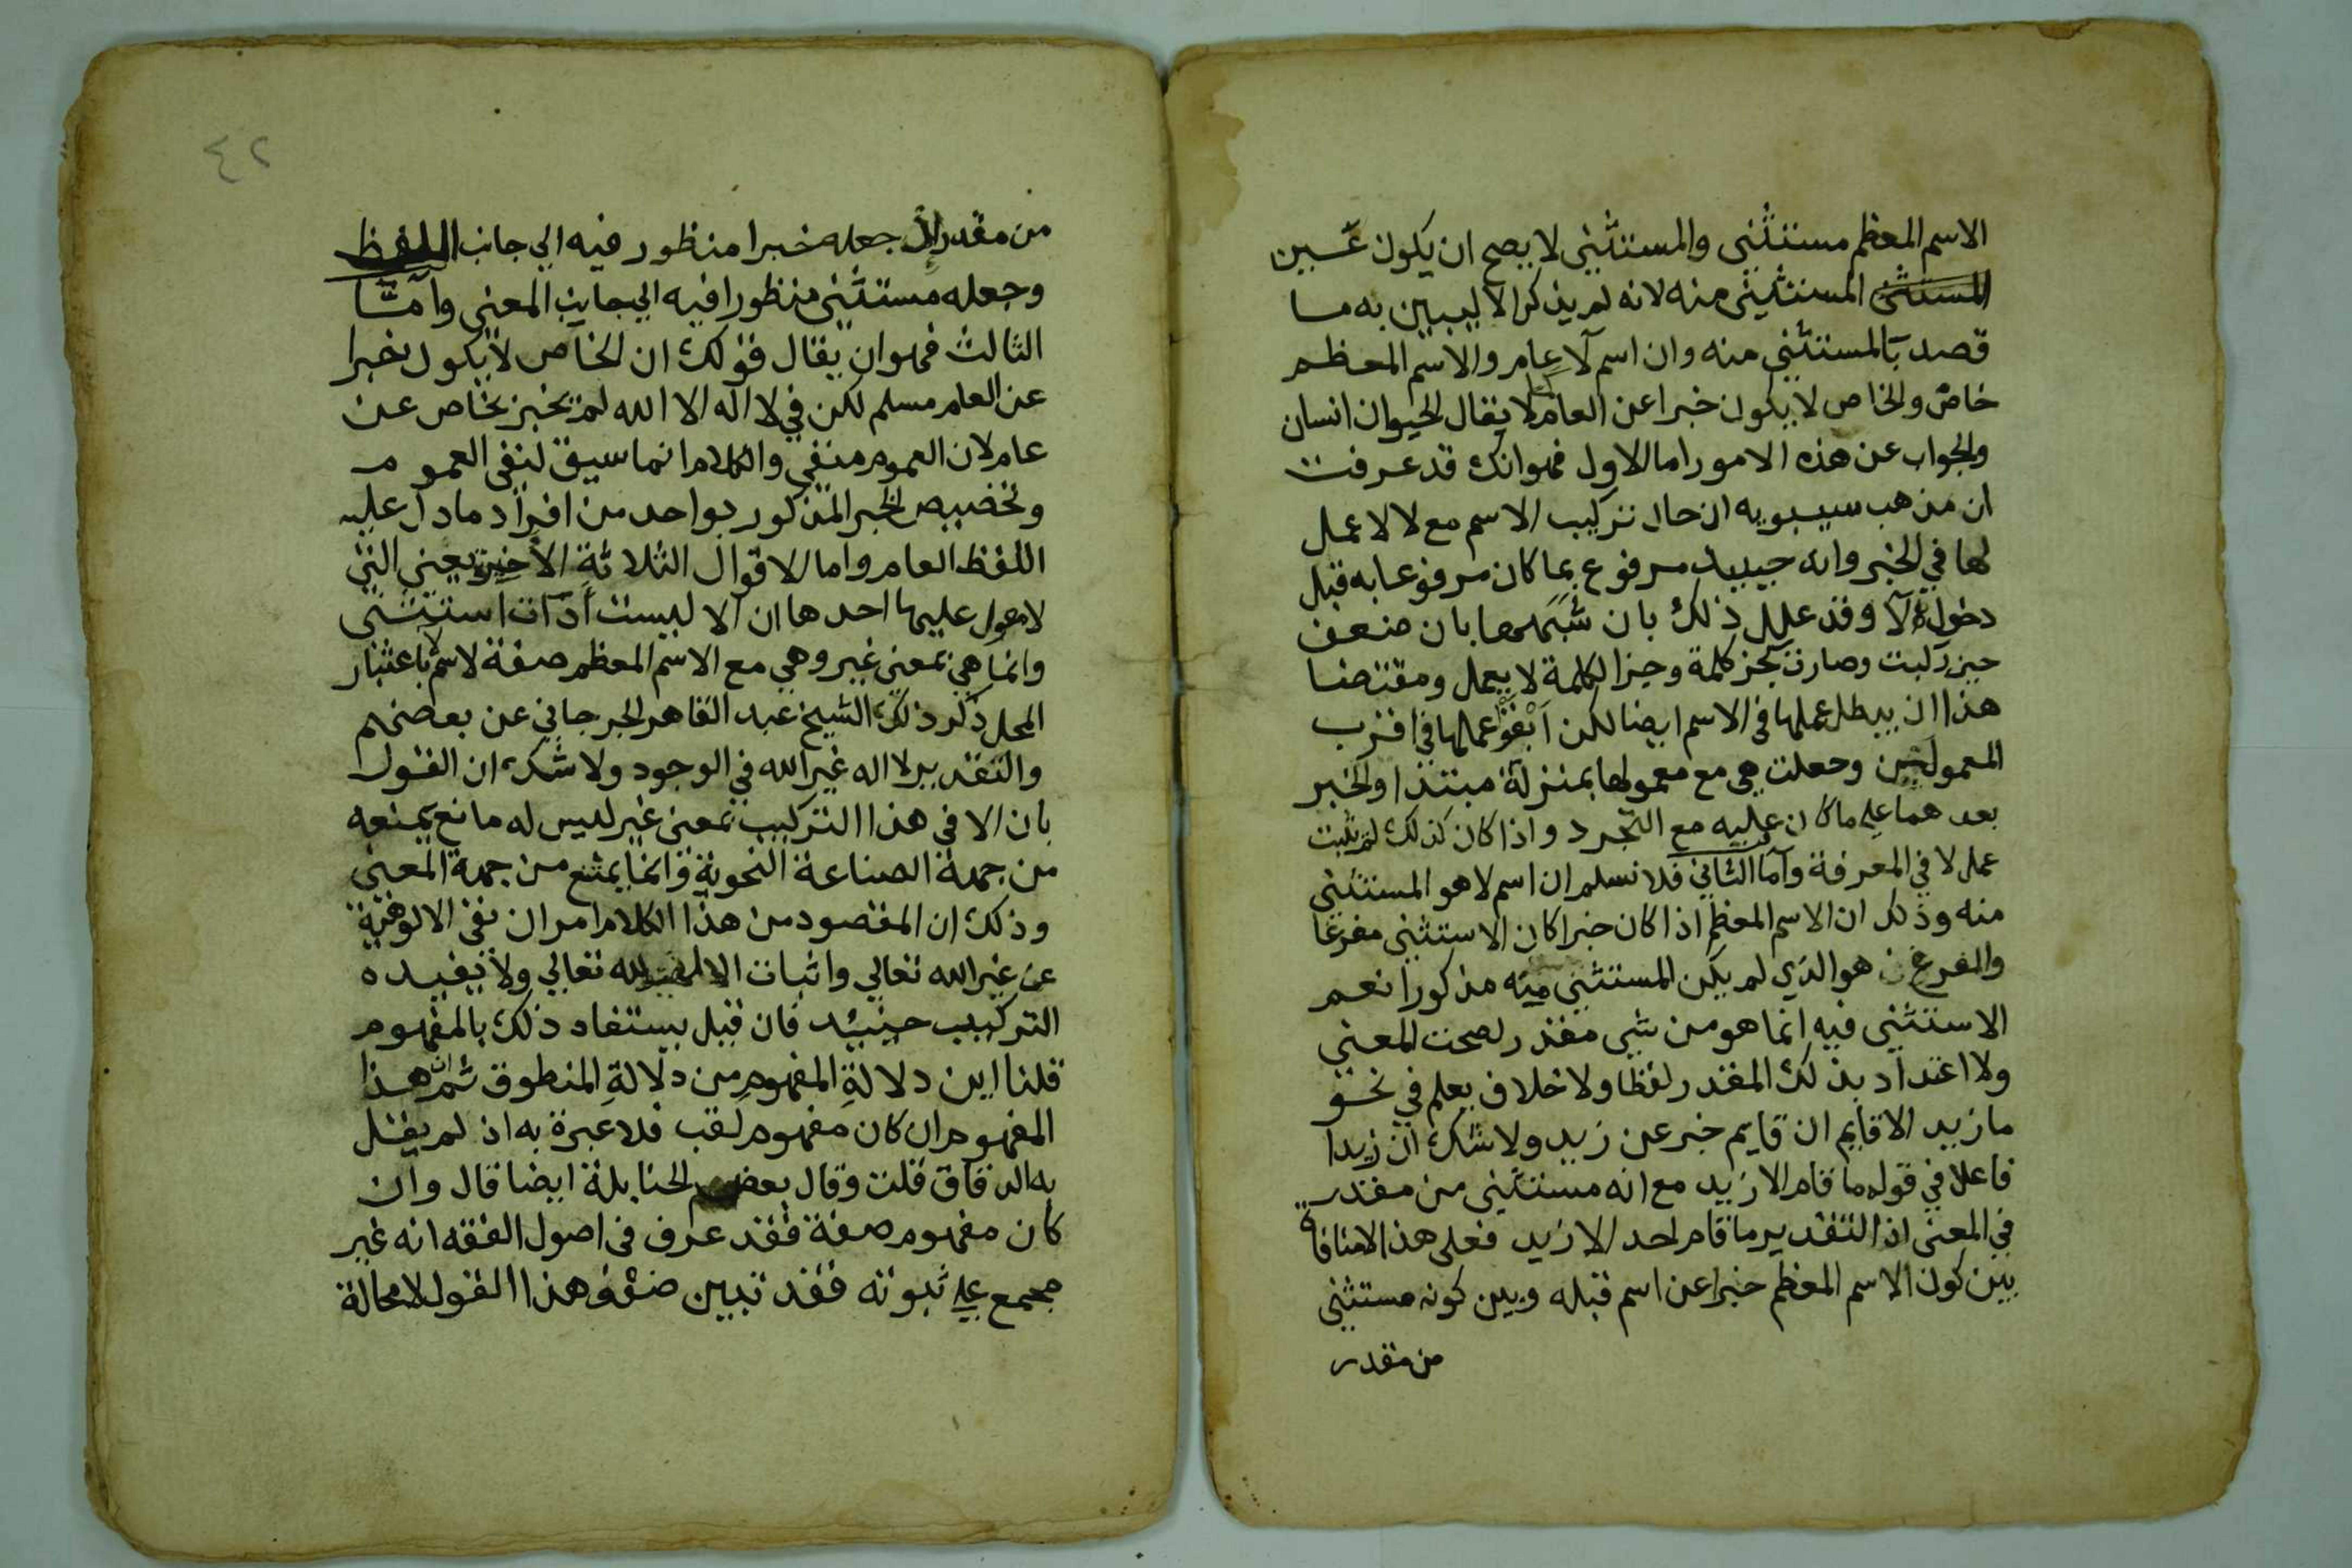 الاسم المعظم مستثنى والمستثنى لا يصح ان يكون عَين
المستثنى المستثنى منه لانه لم يذكر الا ليبين به ما
قصد بالمستثنى منه وان اسم لا عام والاسم المعظم
خاص والخاص لا يكون خبرا عن العام لا يقال الحيوان انسان
والجواب عن هذه الامور اما الاول فهو انك قد عرفت
ان مذهب سيبويه ان حال تركيب الاسم مع لا لا عمل
لها في الخبر وانه حينيذ مرفوع بما كان مرفوعا به قبل
دخول لا وقد علل ذلك بان شبهها بان ضعف
حين ركبت وصارت كجز كلمة وجز الكلمة لا يعمل ومقتضا
هذا ان يبطل عملها في الاسم ايضا لكن اَبْقَوْا عملها في اقرب
المعمولين وجعلت هي مع معمولها بمنزلة مبتدا والخبر
بعدهما على ما كان عليه مع التجرد واذا كان كذلك لم يثبت
عمل لا في المعرفة وآما الثاني فلا نسلم ان اسم لا هو المستثنى
منه وذلك ان الاسم المعظم اذا كان خبرا كان الاستثنى مفرغا
والمفرغ هو الذي لم يكن المستثنى منه مذكورا نعم
الاستثنى فيه انما هو من شي مقدر لصحت المعنى
ولا اعتداد بذلك المقدر لفظا ولا خلاف يعلم في نحو
ما زيد الا قايم ان قايم خبر عن زيد ولا شك ان زيدا
فاعلا في قوله ما قام الا زيد مع انه مستثنى من مقدر
في المعنى اذ التقدير ما قام احد الا زيد فعلى هذا لا منافاة
بين كون الاسم المعظم خبرا عن اسم قبله وبين كونه مستثنى
من مقدر
٤٢
من مقدر اذ جعله خبرا منظور فيه الي جانب اللفظ
وجعله مستثنى منظورا فيه الي جانب المعنى وآمّا
الثالث فهو ان يقال قولك ان الخاص لا يكون خبرا
عن العام مسلم لكن في لا اله الا الله لم يخبر بخاص عن
عام لان العموم منفي والكلام انما سيق لنفي العموم
وتخصيص الخبر المذكور بواحد من افراد ما دل عليه
اللفظ العام واما الاقوال الثلاثة الاخيرة يعني التي
لا معول عليها احدها ان الا ليست اداة استثنى
وانما هي بمعنى غير وهي مع الاسم المعظم صفة لاسم لا باعتبار
المحل ذكر ذلك الشيخ عبد القاهر الجرجاني عن بعضهم
والتقدير لا اله غير الله في الوجود ولا شك ان القول
بان الا في هذا التركيب بمعنى غير ليس له مانع يمنعه
من جهة الصناعة النحوية وانما يمتنع من جهة المعنى
وذلك ان المقصود من هذا الكلام امران نفي الالوهية
عن غير الله تعالي واثبات الالهية لله تعالي ولا يفيده
التركيب حينيذ فان قيل يستفاد ذلك بالمفهوم
قلنا اين دلالةِ المفهومِ من دلالةِ المنطوق ثم ان هذا
المفهوم ان كان مفهوم لقب فلا عبرة به اذ لم يقل
به الا الدقاق قلت وقال بعض الحنابلة ايضا قال وان
كان مفهوم صفة فقد عرف في اصول الفقه انه غير
مجمع على ثبوته فقد تبين ضعف هذا القول لا محالة